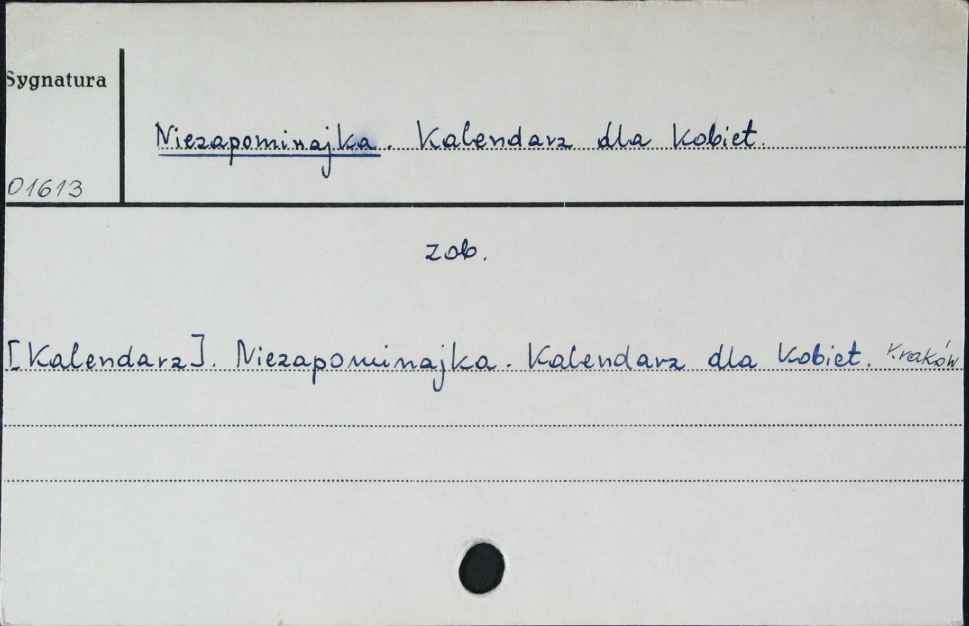 Sygnatura
Niezapominajka. Kalendarz dla kobiet.
01613
zob.
[Kalendarz]. Niezapominajka. Kalendarz dla kobiet. Kraków